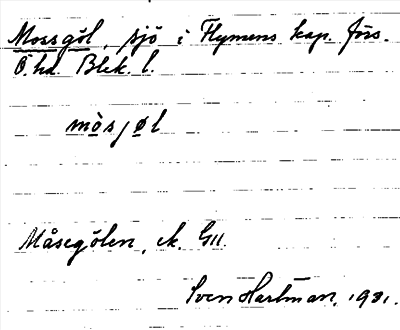 Mossgöl, sjö i Flymens kap. förs.
Ö. hd. Blek. l.
mòsjø̀l
Måsegölen, ek. G11.
Sven Hartman, 1931.